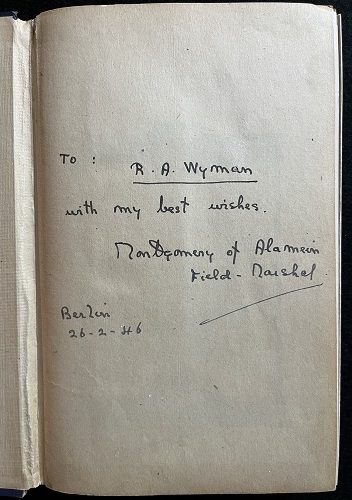 To :
R. A. Wyman
with my best wishes.
Montgomery of Alamein
Field-Marshal
Berlin
26-2-46